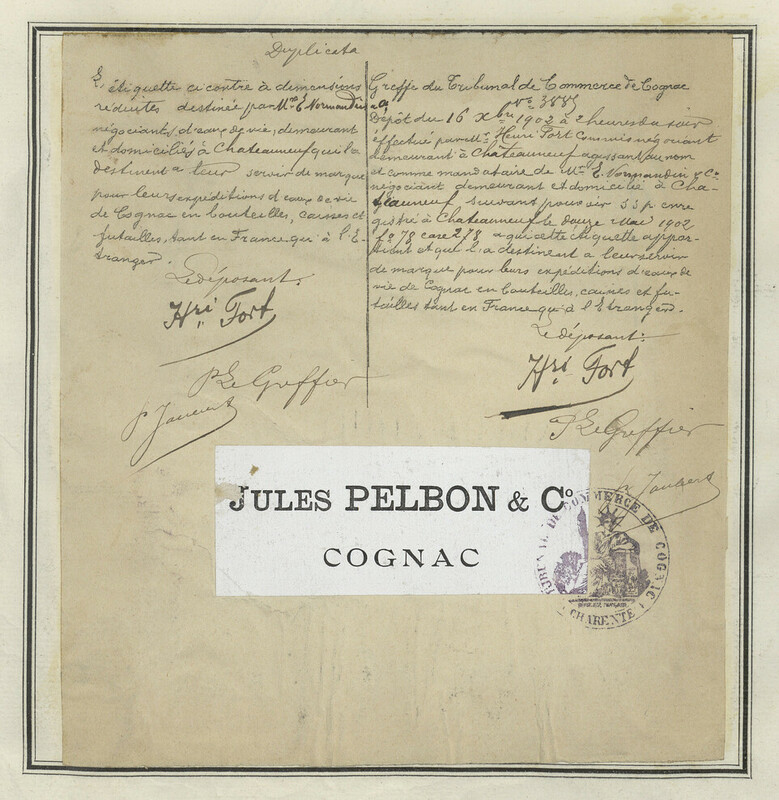 Duplicata
L'étiquette ci contre à dimensions
réduites destinée par Mrs E. Normandin
négociants d'eaux de vie, demeurant
et domiciliés à Chateauneuf qui la
destinent a leur servir de marque
pour leurs expéditions d'eaux de vie
de Cognac en bouteilles, caisses et
futailles, tant en France qu'à l'E-
tranger.
Le déposant.
Hri Fort
P Le Greffier
Greffe du Tribunal de Commerce de Cognac
No 3885
Dépôt du 16 Xbre 1902 à 2 heures du soir
effectué par Mr. Henri Fort Commis négociant
demeurant à Chateauneuf agissant au nom
et comme mandataire de Mrs E. Normandin & Co
négociant demeurant et domicilié à Cha-
teauneuf suivant pouvoir s s p enre
gistré à Chateauneuf le douze Mai 1902
fo 78 case 278 a qui cette étiquette appar-
tient et qui l'a destinent a leur servir
de marque pour leurs expéditions d'eaux de
vie de Cognac en bouteilles, caisses et fu-
tailles tant en France qu'à l'Etranger.
Le déposant:
Hri Fort
P Le Greffier
JULES PELBON & Co
COGNAC
TRIBUNAL DE COMMERCE DE COGNAC
CHARENTE